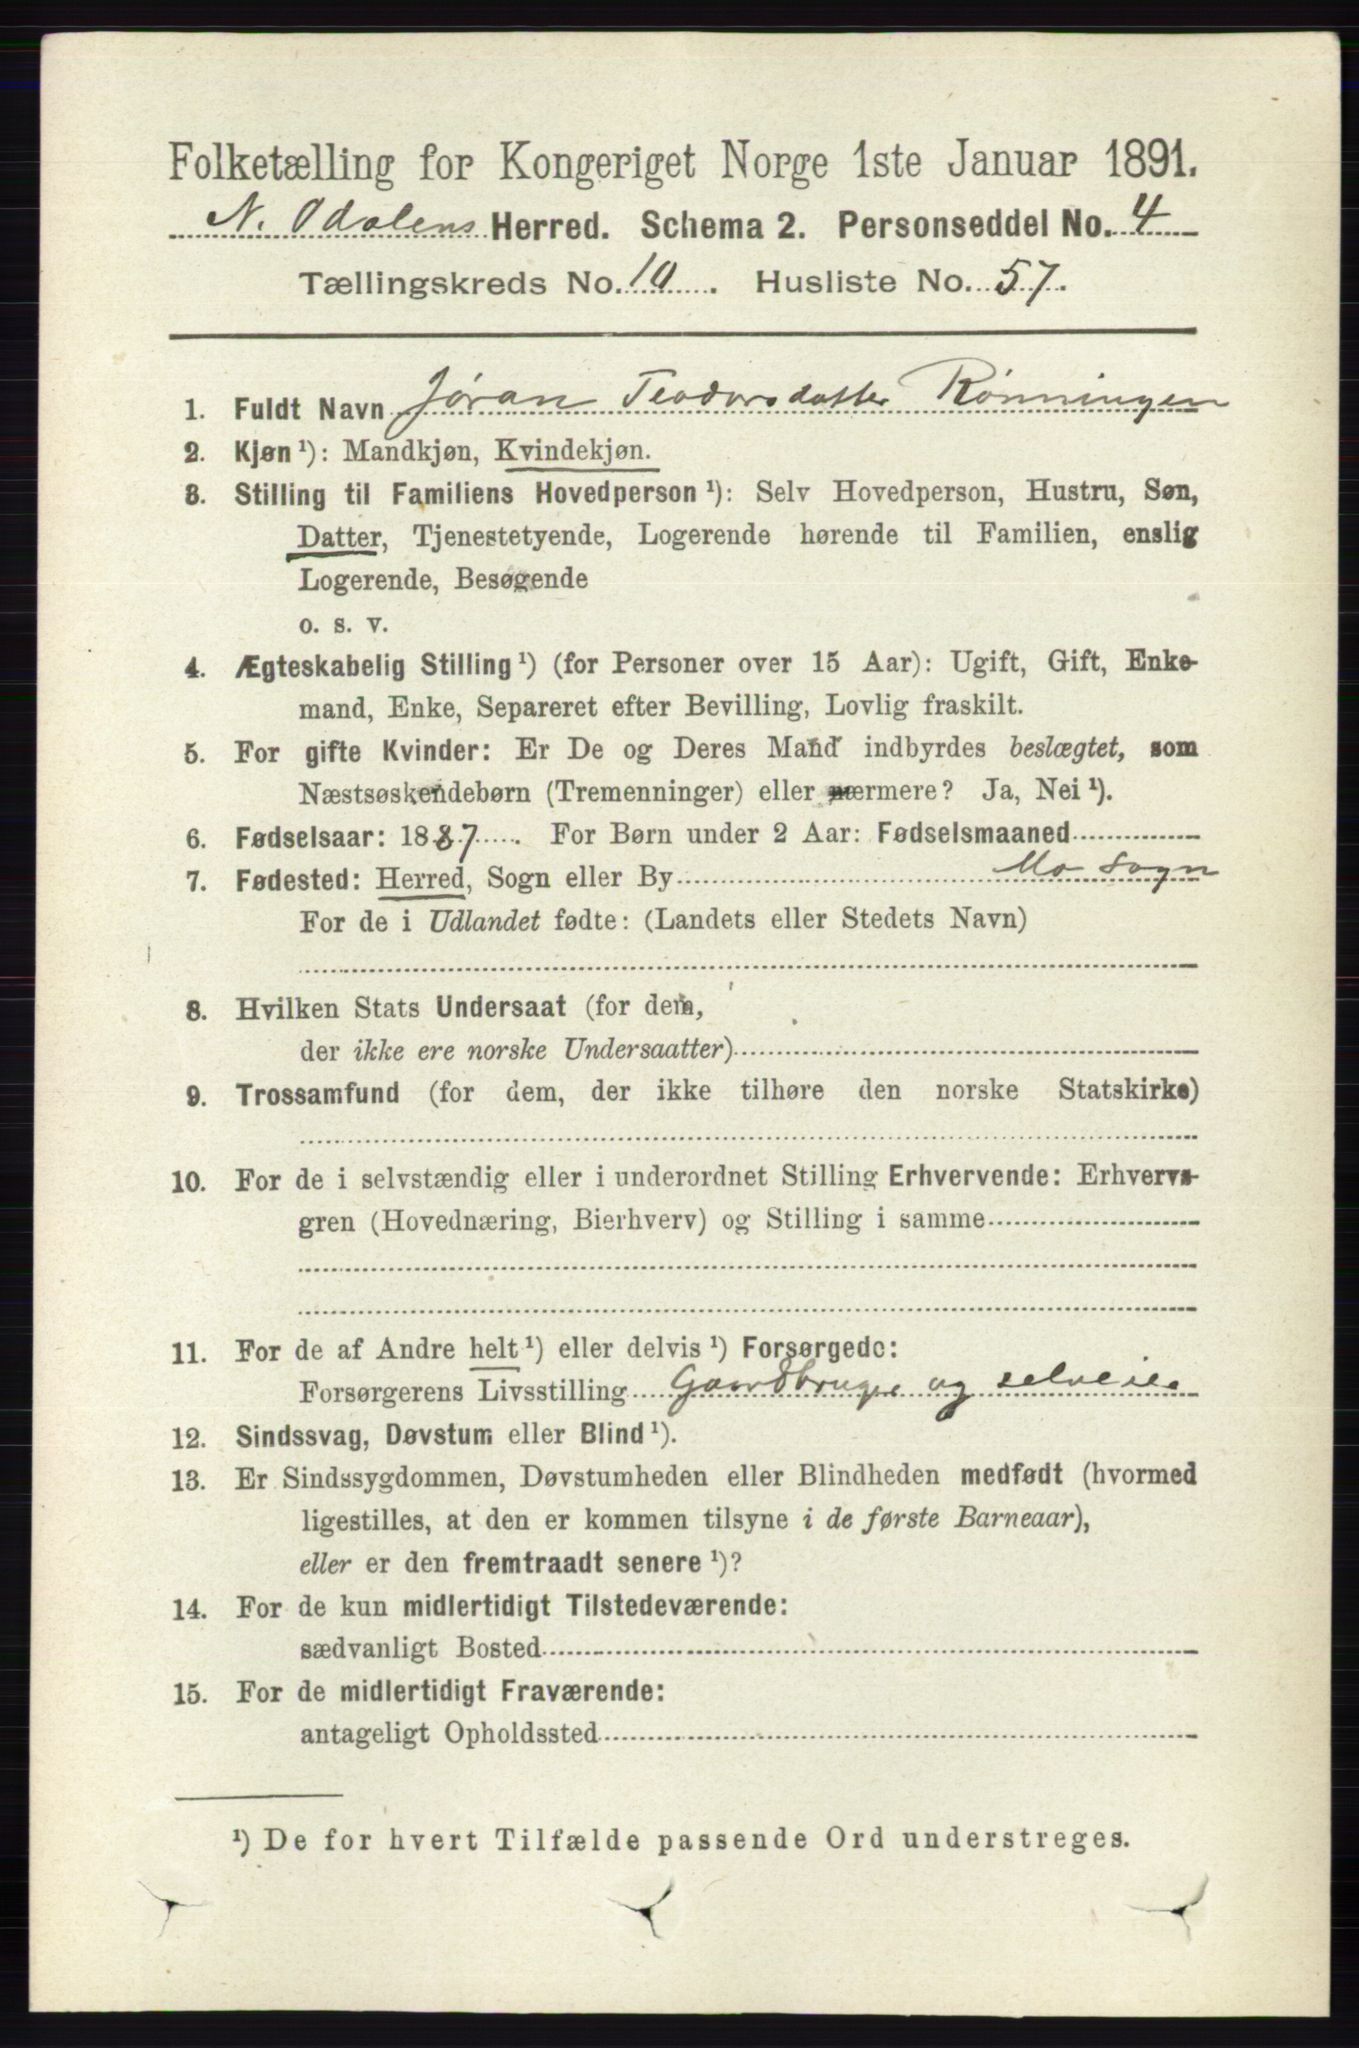 Folketælling for Kongeriget Norge 1ste Januar 1891.
N. Odalens Herred. Schema 2. Personseddel No. 4
Tællingskreds No. 10. Husliste No. 57.
1. Fuldt Navn Jøran Teodorsdatter Rønningen
2. Kjøn ¹): Mandkjøn, Kvindekjøn.
3. Stilling til Familiens Hovedperson ¹): Selv Hovedperson, Hustru, Søn,
Datter, Tjenestetyende, Logerende hørende til Familien, enslig
Logerende, Besøgende
o. s. v.
4. Ægteskabelig Stilling ¹) (for Personer over 15 Aar): Ugift, Gift, Enke-
mand, Enke, Separeret efter Bevilling, Lovlig fraskilt.
5. For gifte Kvinder: Er De og Deres Mand indbyrdes beslægtet, som
Næstsøskendebørn (Tremenninger) eller nærmere? Ja, Nei ¹).
6. Fødselsaar: 1887. For Børn under 2 Aar: Fødselsmaaned
7. Fødested: Herred, Sogn eller By Mo Sogn
For de i Udlandet fødte: (Landets eller Stedets Navn)
8. Hvilken Stats Undersaat (for dem,
der ikke ere norske Undersaatter)
9. Trossamfund (for dem, der ikke tilhøre den norske Statskirke)
10. For de i selvstændig eller i underordnet Stilling Erhvervende: Erhvervs-
gren (Hovednæring, Bierhverv) og Stilling i samme
11. For de af Andre helt ¹) eller delvis ¹) Forsørgede:
Forsørgerens Livsstilling Gaardbruger og selveier
12. Sindssvag, Døvstum eller Blind ¹).
13. Er Sindssygdommen, Døvstumheden eller Blindheden medfødt (hvormed
ligestilles, at den er kommen tilsyne i de første Barneaar),
eller er den fremtraadt senere ¹)?
14. For de kun midlertidigt Tilstedeværende:
sædvanligt Bosted
15. For de midlertidigt Fraværende:
antageligt Opholdssted
¹) De for hvert Tilfælde passende Ord understreges.